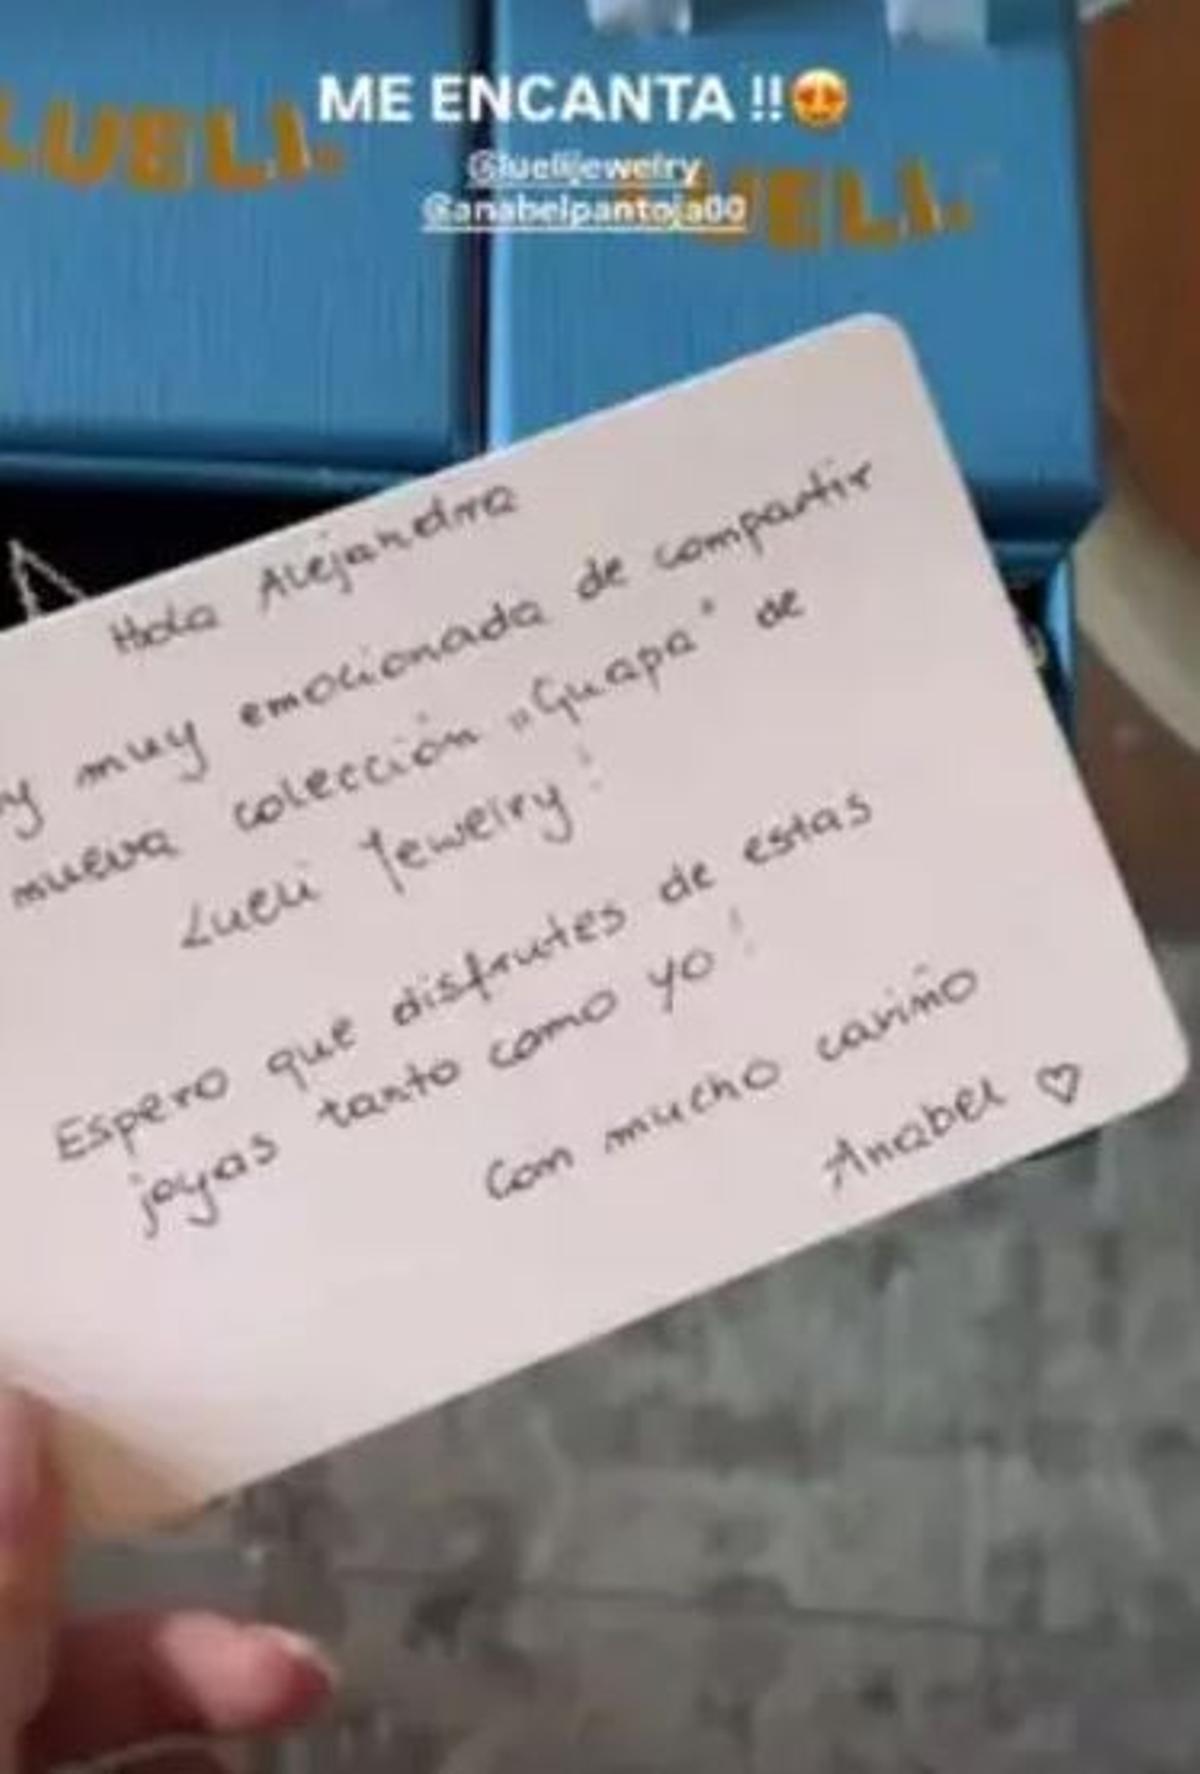 ME ENCANTA !!😍
@luelijewelry
@anabelpantoja00
LUELI.
UELI.
Hola Alejandra
y muy emocionada de compartir
nueva colección „Guapa" de
Lueli Jewelry!
Espero que disfrutes de estas
joyas tanto como yo!
Con mucho cariño
Anabel ♡